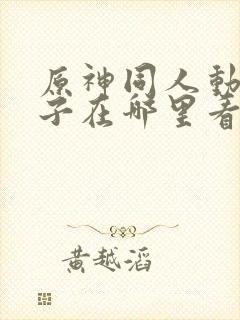 原神同人動
子在哪里看
黄越滔